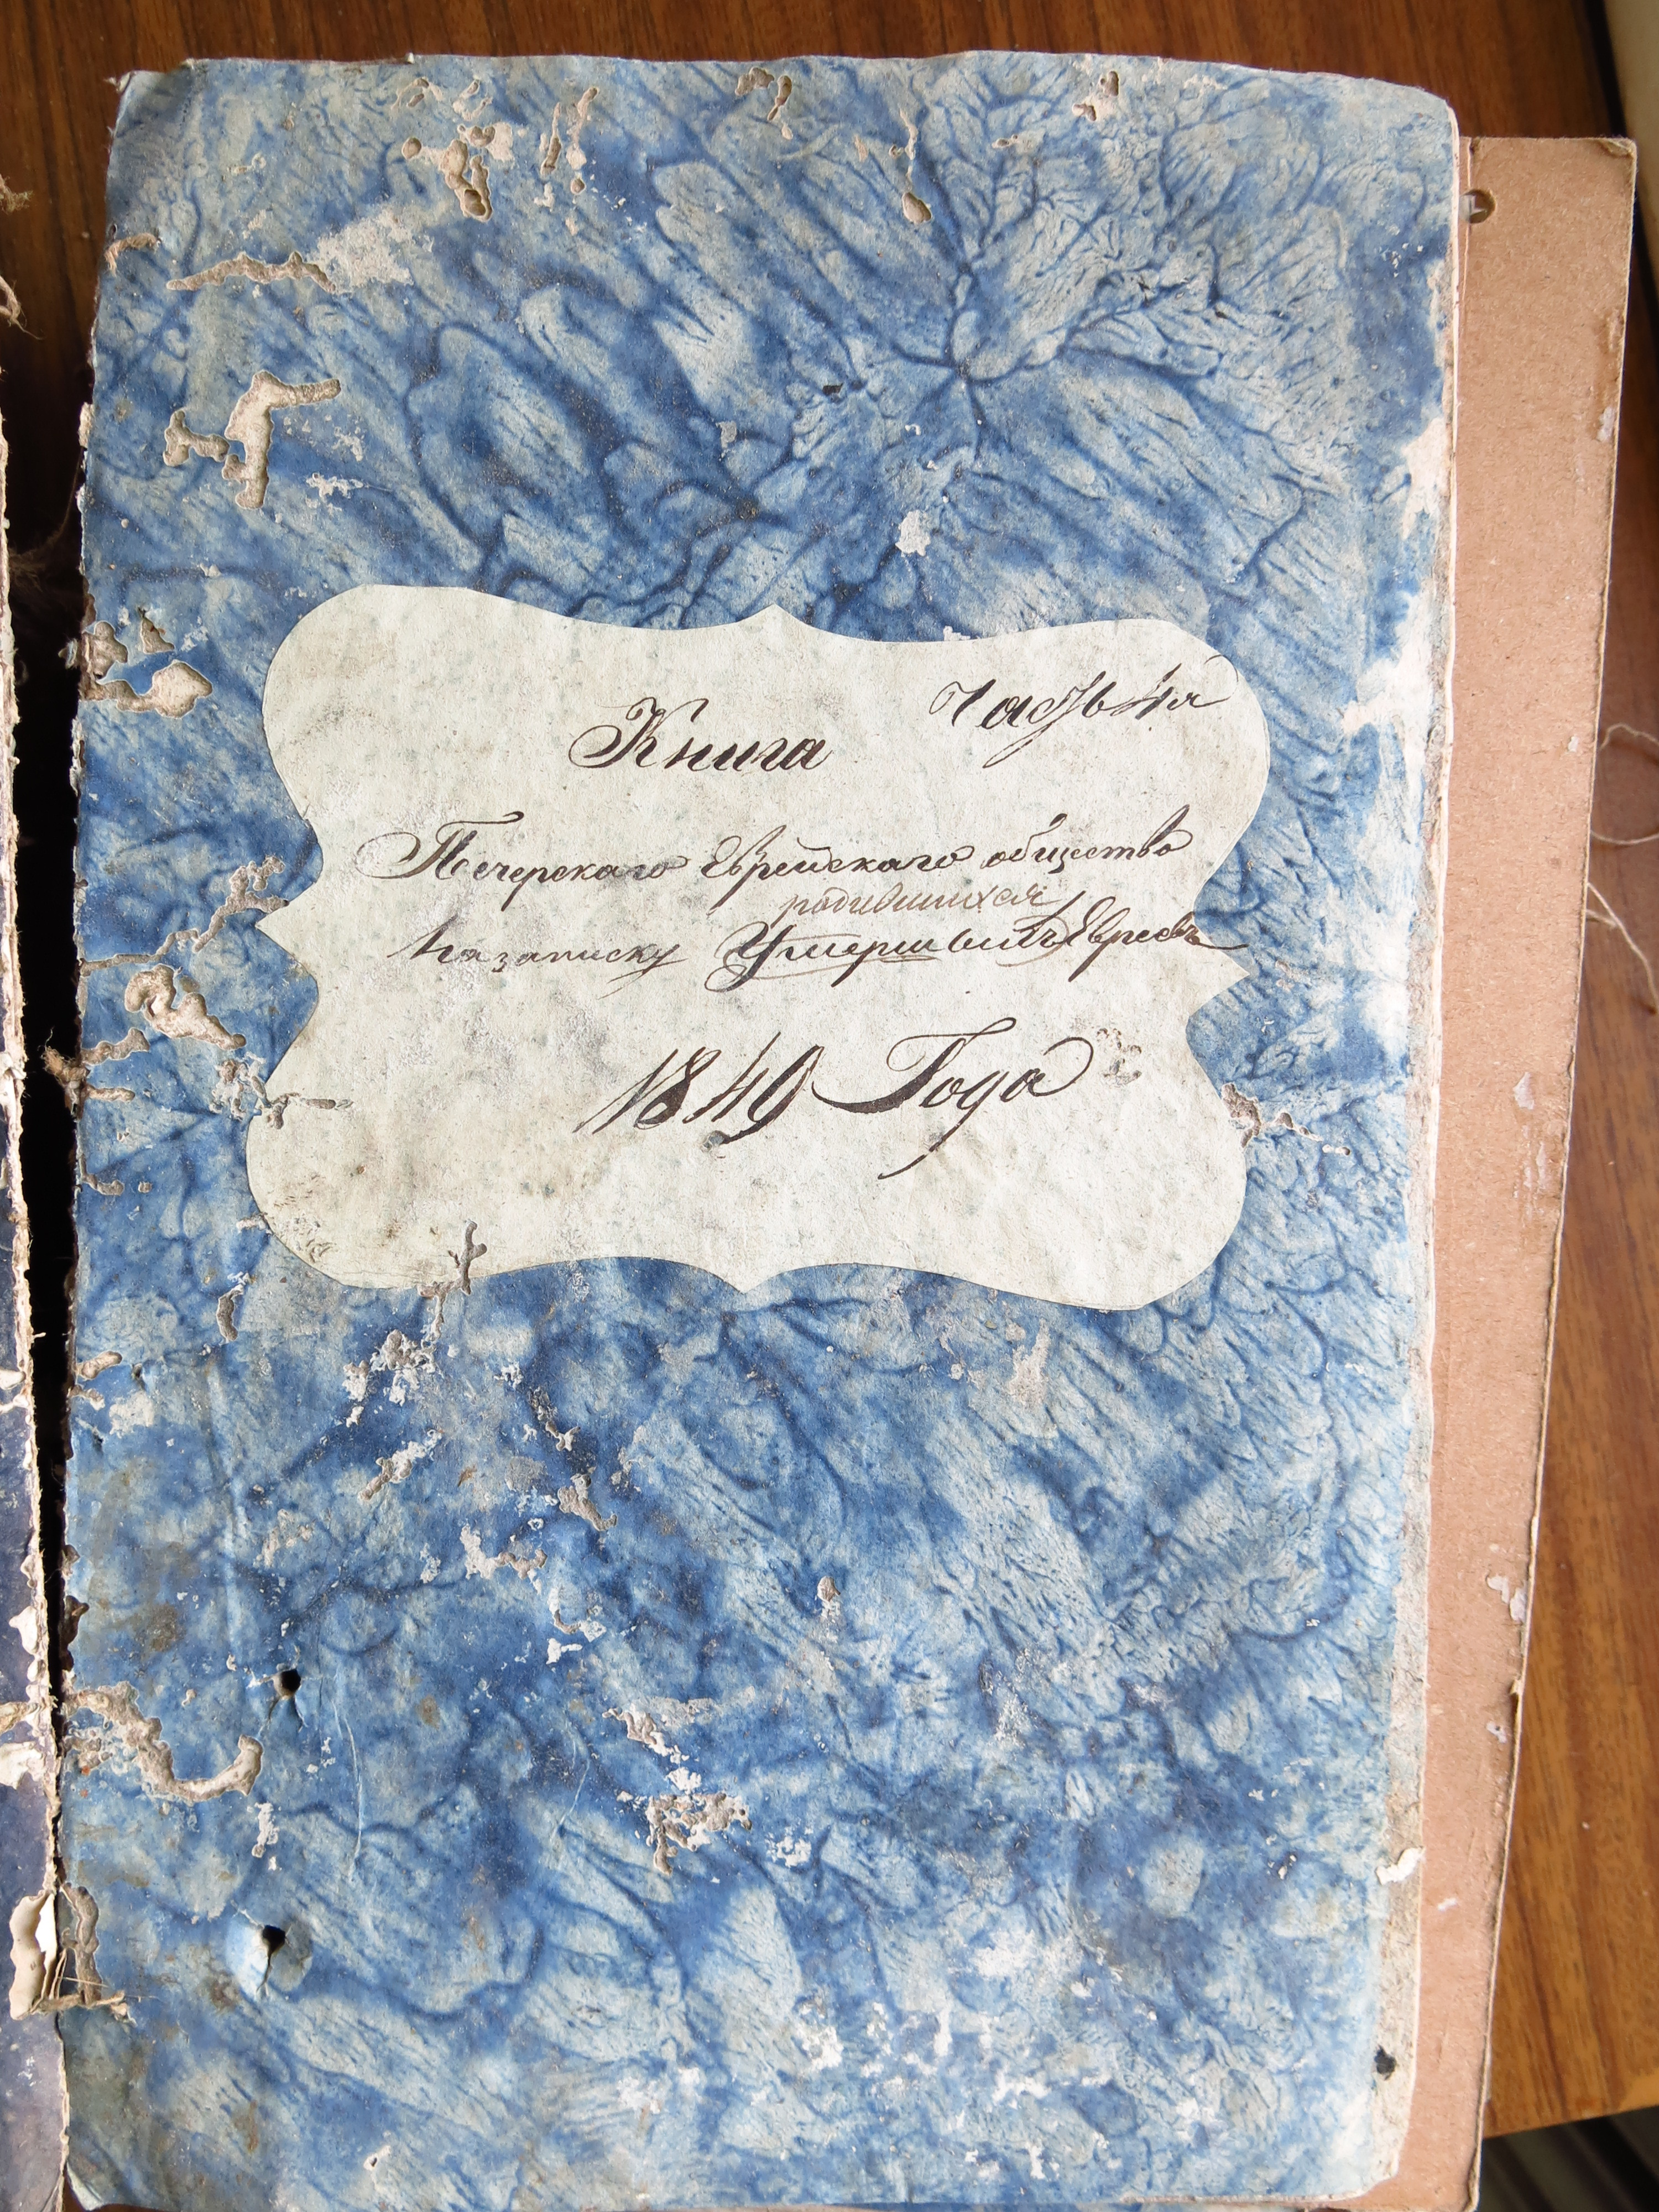 Часть 4я
Книга
Печерскаго Еврейскаго общества
родившихся
На записку Умершихъ Евреевъ
1849 Года